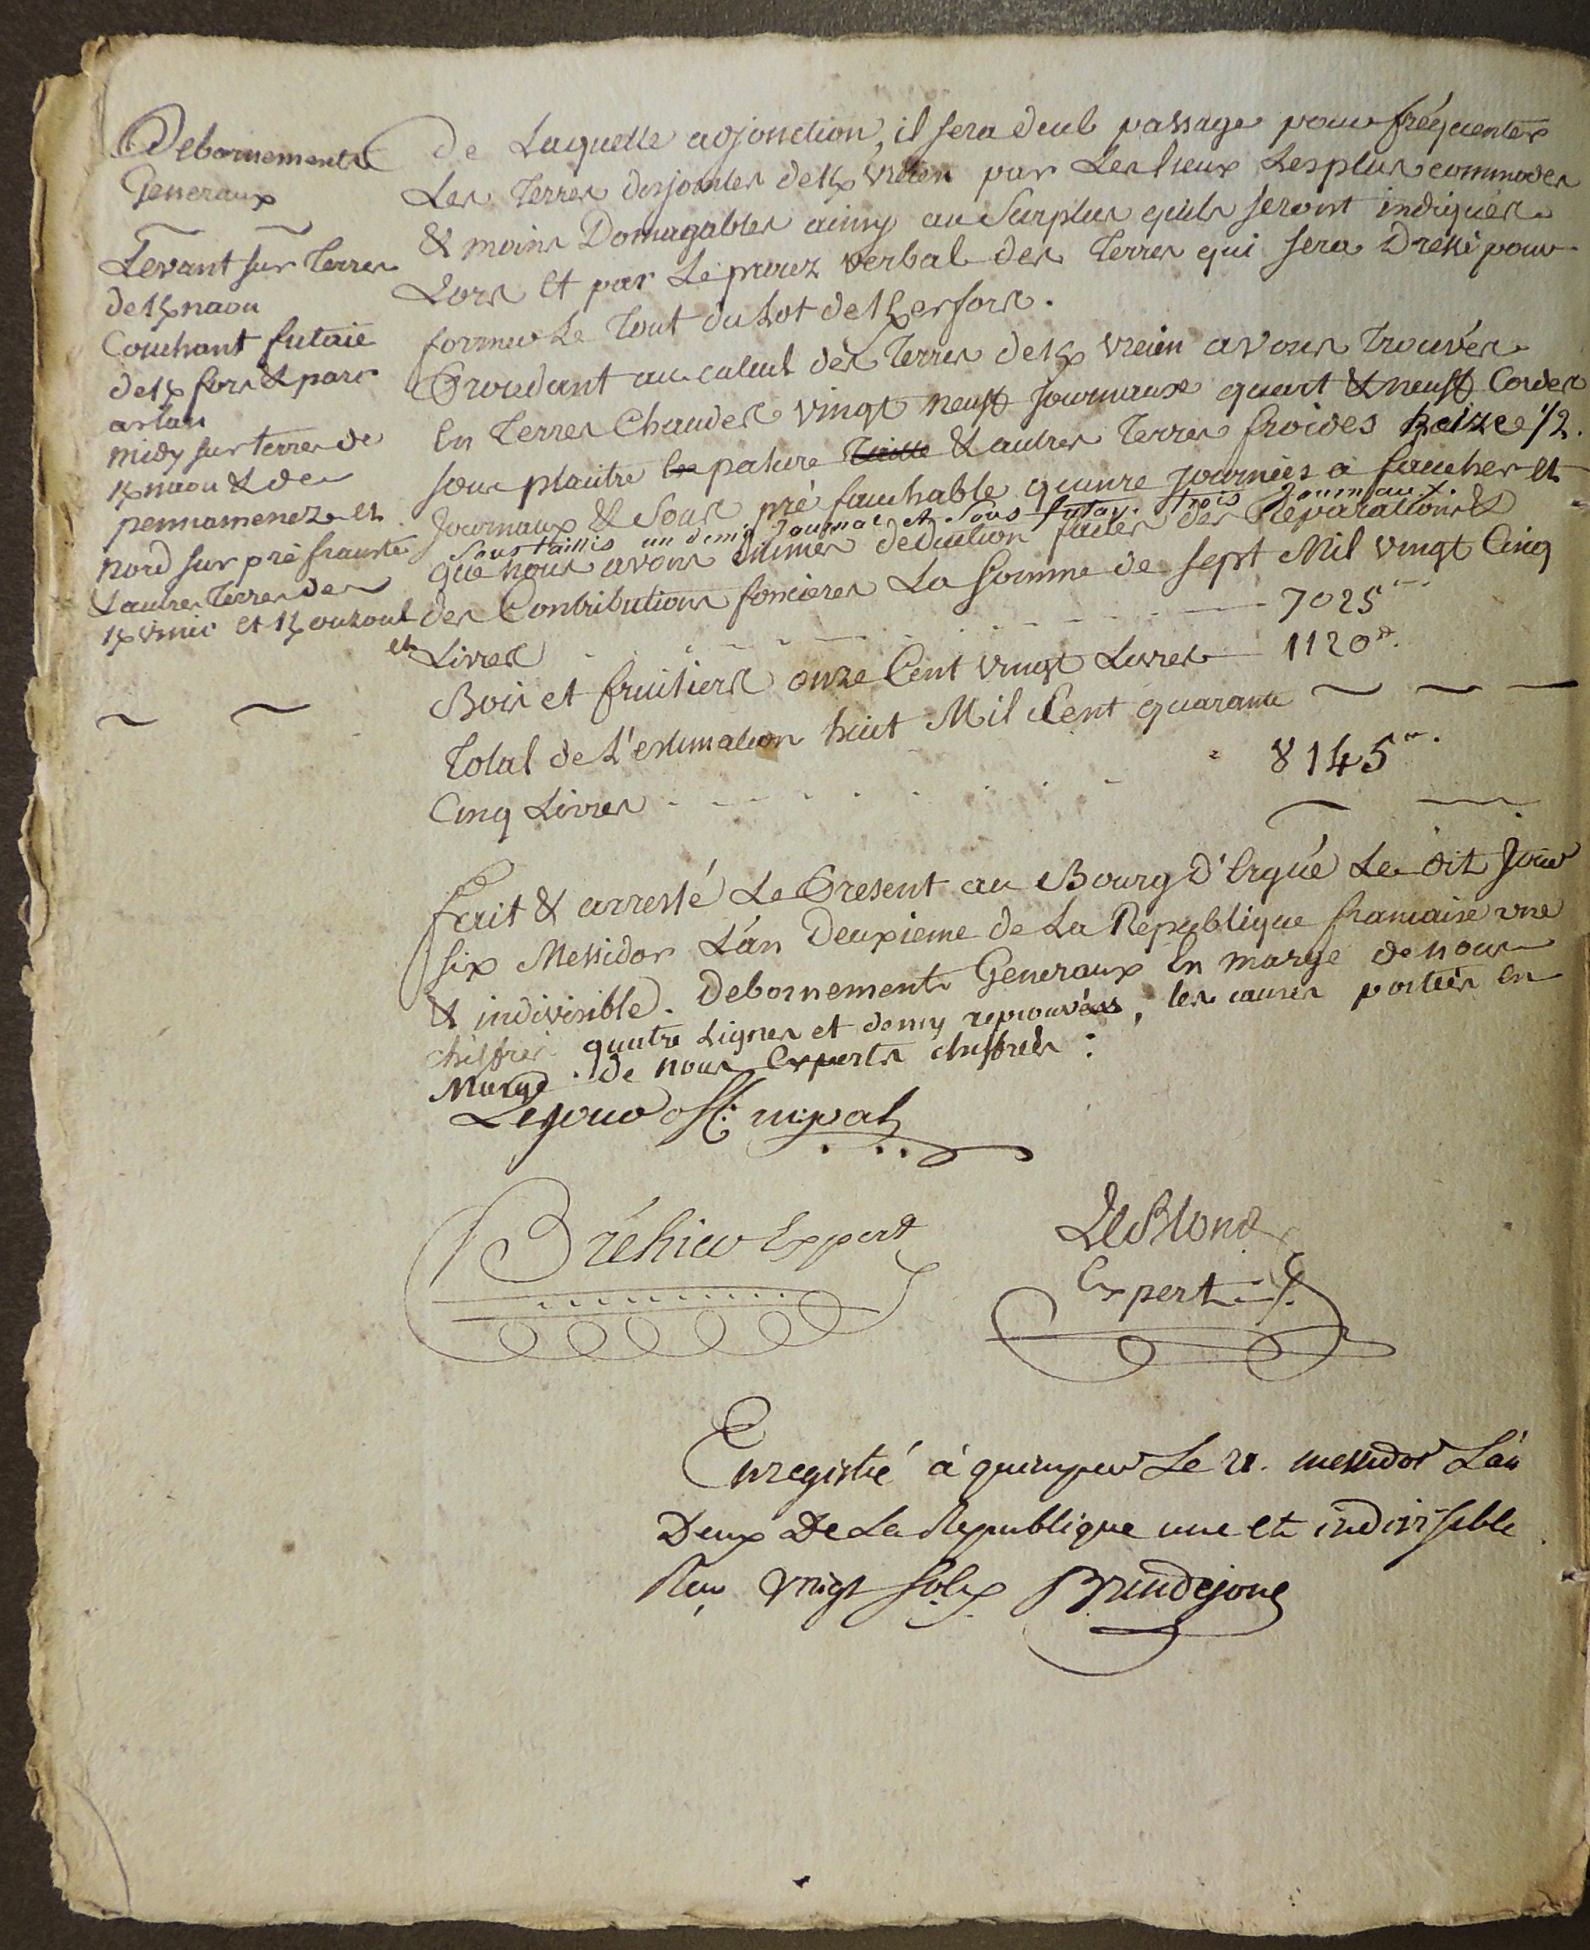 Debornements
Generaux
Levant sur Terres
de Kernaou
Couchant futaie
de Kerfors & parc
artau
midy sur terres de
Kernaou & de
pennamenez et
nord sur pré
& autres Terres de
et Kerouzoul
de Laquelle adjonction, il sera deub passage pour fréquenter
Les Terres disjointes de Kervreien par Les lieux Les plus commodes
& moins Domagables ainsy au Surplus quils seront indiqués
Lors et par Le procez verbal des Terres qui sera Dressé pour
former Le Tout du Lot de Kerfors.
Procedant au calcul des Terres de Kervreien avons Trouvés
En Terres Chaudes vingt neuff journaux quart & neuff Cordes
sous plaitre pature & autres Terres froides treize 1/2
Journaux & Sous pré fauchable quinze journées a faucher et
Sous taillis un demi Journal et Sous futay. trois Journaux.
que nous avons Estimés deduction faites des Reparations &
des Contributions foncieres La somme de sept Mil vingt Cinq
Livres 7025
Bois et fruitiers onze Cent vingt Livres 1120
Total de L'estimation huit Mil Cent quarante
Cinq Livres 8145
Fait & arresté Le Present au Bourg D'Ergué Le dit Jour
six Messidor L'an Deuxieme de La Republique francaise une
& indivisible. Debornements Generaux En marge de nous
chiffrés quatre Lignes et demy reprouvées, les causes portées en
Marge. De nous Experts chiffrés :
Lejour off. mpal
Bréhier Expert
LeBlond
Expert
Enregistré à quimper Le 21. messidor L'an
Deux De La Republique une et indivisible
Reçu vingt sols Brindejonc